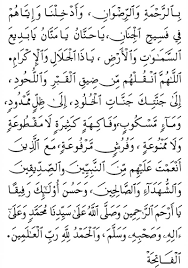 بِالرَّحْمَةِ وَالرِّضْوَانِ، وَأَدْخِلْنَا وَإِيَّاهُمْ
فِي فَسِيحِ الْجِنَانِ، يَاحَنَّانُ يَامَنَّانُ يَابَدِيعَ
السَّمٰوَاتِ وَالْأَرْضِ، يَاذَا الْجَلَالِ وَالْإِكْرَامِ.
اَللّٰهُمَّ انْقُلْهُمْ مِنْ ضِيقِ الْقَبْرِ وَاللُّحُودِ،
إِلَى جَنَّتِكَ جَنَّاتِ الْخُلُودِ، إِلَى ظِلٍّ مَمْدُودٍ،
وَمَاءٍ مَسْكُوبٍ، وَفَاكِهَةٍ كَثِيرَةٍ لَا مَقْطُوعَةٍ
وَلَا مَمْنُوعَةٍ، وَفُرُشٍ مَرْفُوعَةٍ، مَعَ الَّذِينَ
أَنْعَمْتَ عَلَيْهِمْ مِنَ النَّبِيِّينَ وَالصِّدِّيقِينَ
وَالشُّهَدَاءِ وَالصَّالِحِينَ، وَحَسُنَ أُولٰئِكَ رَفِيقًا
يَا أَرْحَمَ الرَّاحِمِينَ وَصَلَّى اللهُ عَلَى سَيِّدِنَا مُحَمَّدٍ وَعَلَى
آلِهِ، وَصَحْبِهِ، وَسَلَّمَ، وَالْحَمْدُ لِلّٰهِ رَبِّ الْعَالَمِينَ.
اَلْفَاتِحَةْ